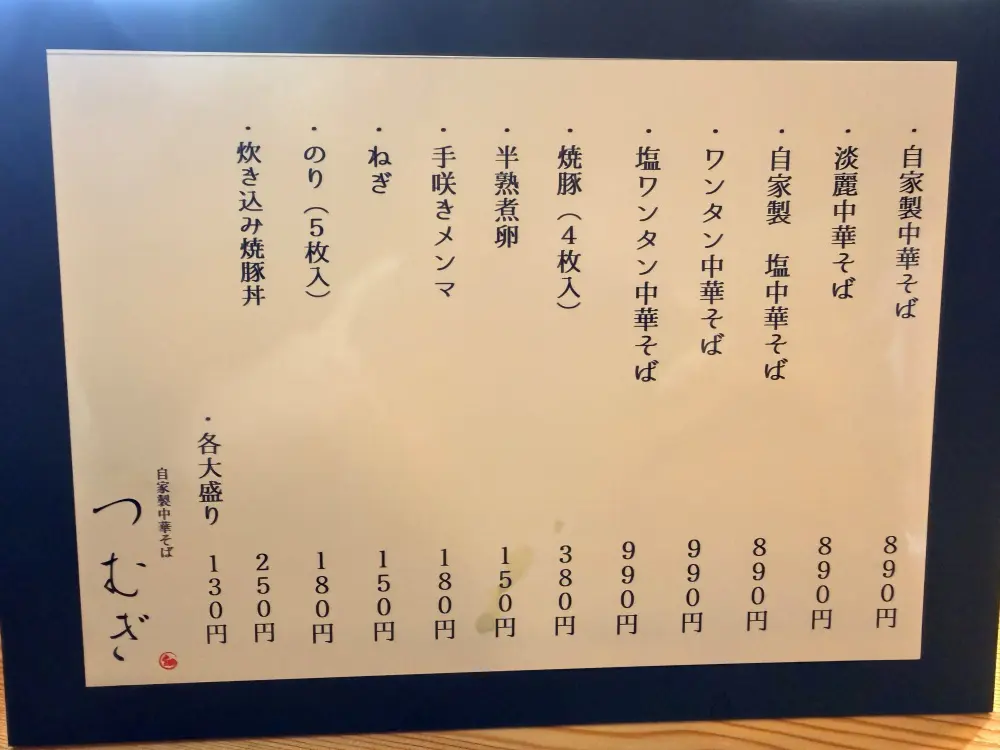 ・自家製中華そば 890円
・淡麗中華そば 890円
・自家製 塩中華そば 890円
・ワンタン中華そば 990円
・塩ワンタン中華そば 990円
・焼豚（4枚入） 380円
・半熟煮卵 150円
・手咲きメンマ 180円
・ねぎ 150円
・のり（5枚入） 180円
・炊き込み焼豚丼 250円
・各大盛り 130円
自家製中華そば
つむぎ